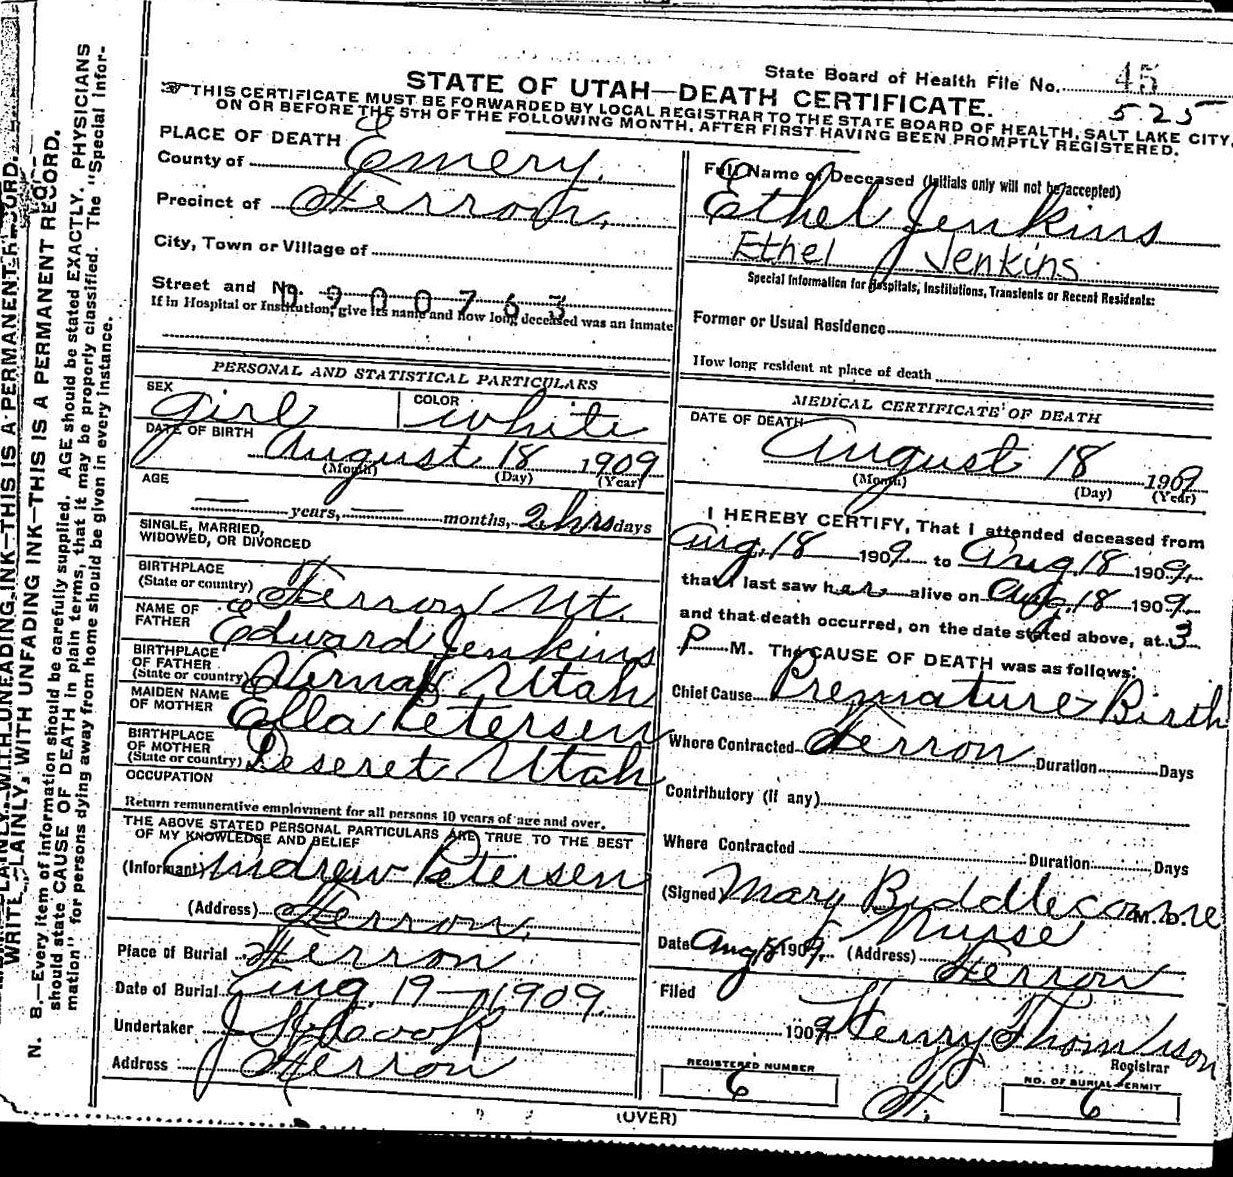 State Board of Health File No. 45
525
STATE OF UTAH—DEATH CERTIFICATE.
THIS CERTIFICATE MUST BE FORWARDED BY LOCAL REGISTRAR TO THE STATE BOARD OF HEALTH, SALT LAKE CITY,
ON OR BEFORE THE 5TH OF THE FOLLOWING MONTH, AFTER FIRST HAVING BEEN PROMPTLY REGISTERED.
PLACE OF DEATH
County of Emery.
Precinct of Ferron.
City, Town or Village of
Street and No.
0900763
If in Hospital or Institution, give its name and how long deceased was an inmate
Full Name of Deceased (Initials only will not be accepted)
Ethel Jenkins
Ethel Jenkins
Special Information for Hospitals, Institutions, Transients or Recent Residents:
Former or Usual Residence
How long resident at place of death
PERSONAL AND STATISTICAL PARTICULARS
SEX girl COLOR white
DATE OF BIRTH August 18 1909
(Month) (Day) (Year)
AGE
— years, — months, 2 hrs days
SINGLE, MARRIED,
WIDOWED, OR DIVORCED
BIRTHPLACE
(State or country) Ferron Ut.
NAME OF
FATHER Edward Jenkins
BIRTHPLACE
OF FATHER
(State or country) Vernal Utah
MAIDEN NAME
OF MOTHER Ella Petersen
BIRTHPLACE
OF MOTHER
(State or country) Deseret Utah
OCCUPATION
Return remunerative employment for all persons 10 years of age and over.
THE ABOVE STATED PERSONAL PARTICULARS ARE TRUE TO THE BEST
OF MY KNOWLEDGE AND BELIEF
(Informant) Andrew Petersen
(Address) Ferron.
Place of Burial Ferron
Date of Burial Aug. 19—1909.
Undertaker J
Address Ferron
MEDICAL CERTIFICATE OF DEATH
DATE OF DEATH August 18 1909
(Month) (Day) (Year)
I HEREBY CERTIFY, That I attended deceased from
Aug. 18 1909. to Aug. 18 1909.
that I last saw her alive on Aug. 18 1909.
and that death occurred, on the date stated above, at 3
P M. The CAUSE OF DEATH was as follows:
Chief Cause Premature Birth
Where Contracted Ferron Duration Days
Contributory (if any)
Where Contracted Duration Days
(Signed) Mary Biddlecome M. D.
Nurse
Date Aug 1909. (Address) Ferron
Filed
1909 Henry Thomsson
Registrar
REGISTERED NUMBER
6
NO. OF BURIAL PERMIT
6
(OVER)
WRITE PLAINLY, WITH UNFADING INK—THIS IS A PERMANENT RECORD.
N. B.—Every item of information should be carefully supplied. AGE should be stated EXACTLY. PHYSICIANS
should state CAUSE OF DEATH in plain terms, that it may be properly classified. The "Special Infor-
mation" for persons dying away from home should be given in every instance.